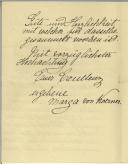 Güte und Herzlichkeit
mit welcher sie dasselbe
gesammelt worden ist.
Mit vorzüglichster
Hochachtung
Euer Excellenz
ergebene
Marga von